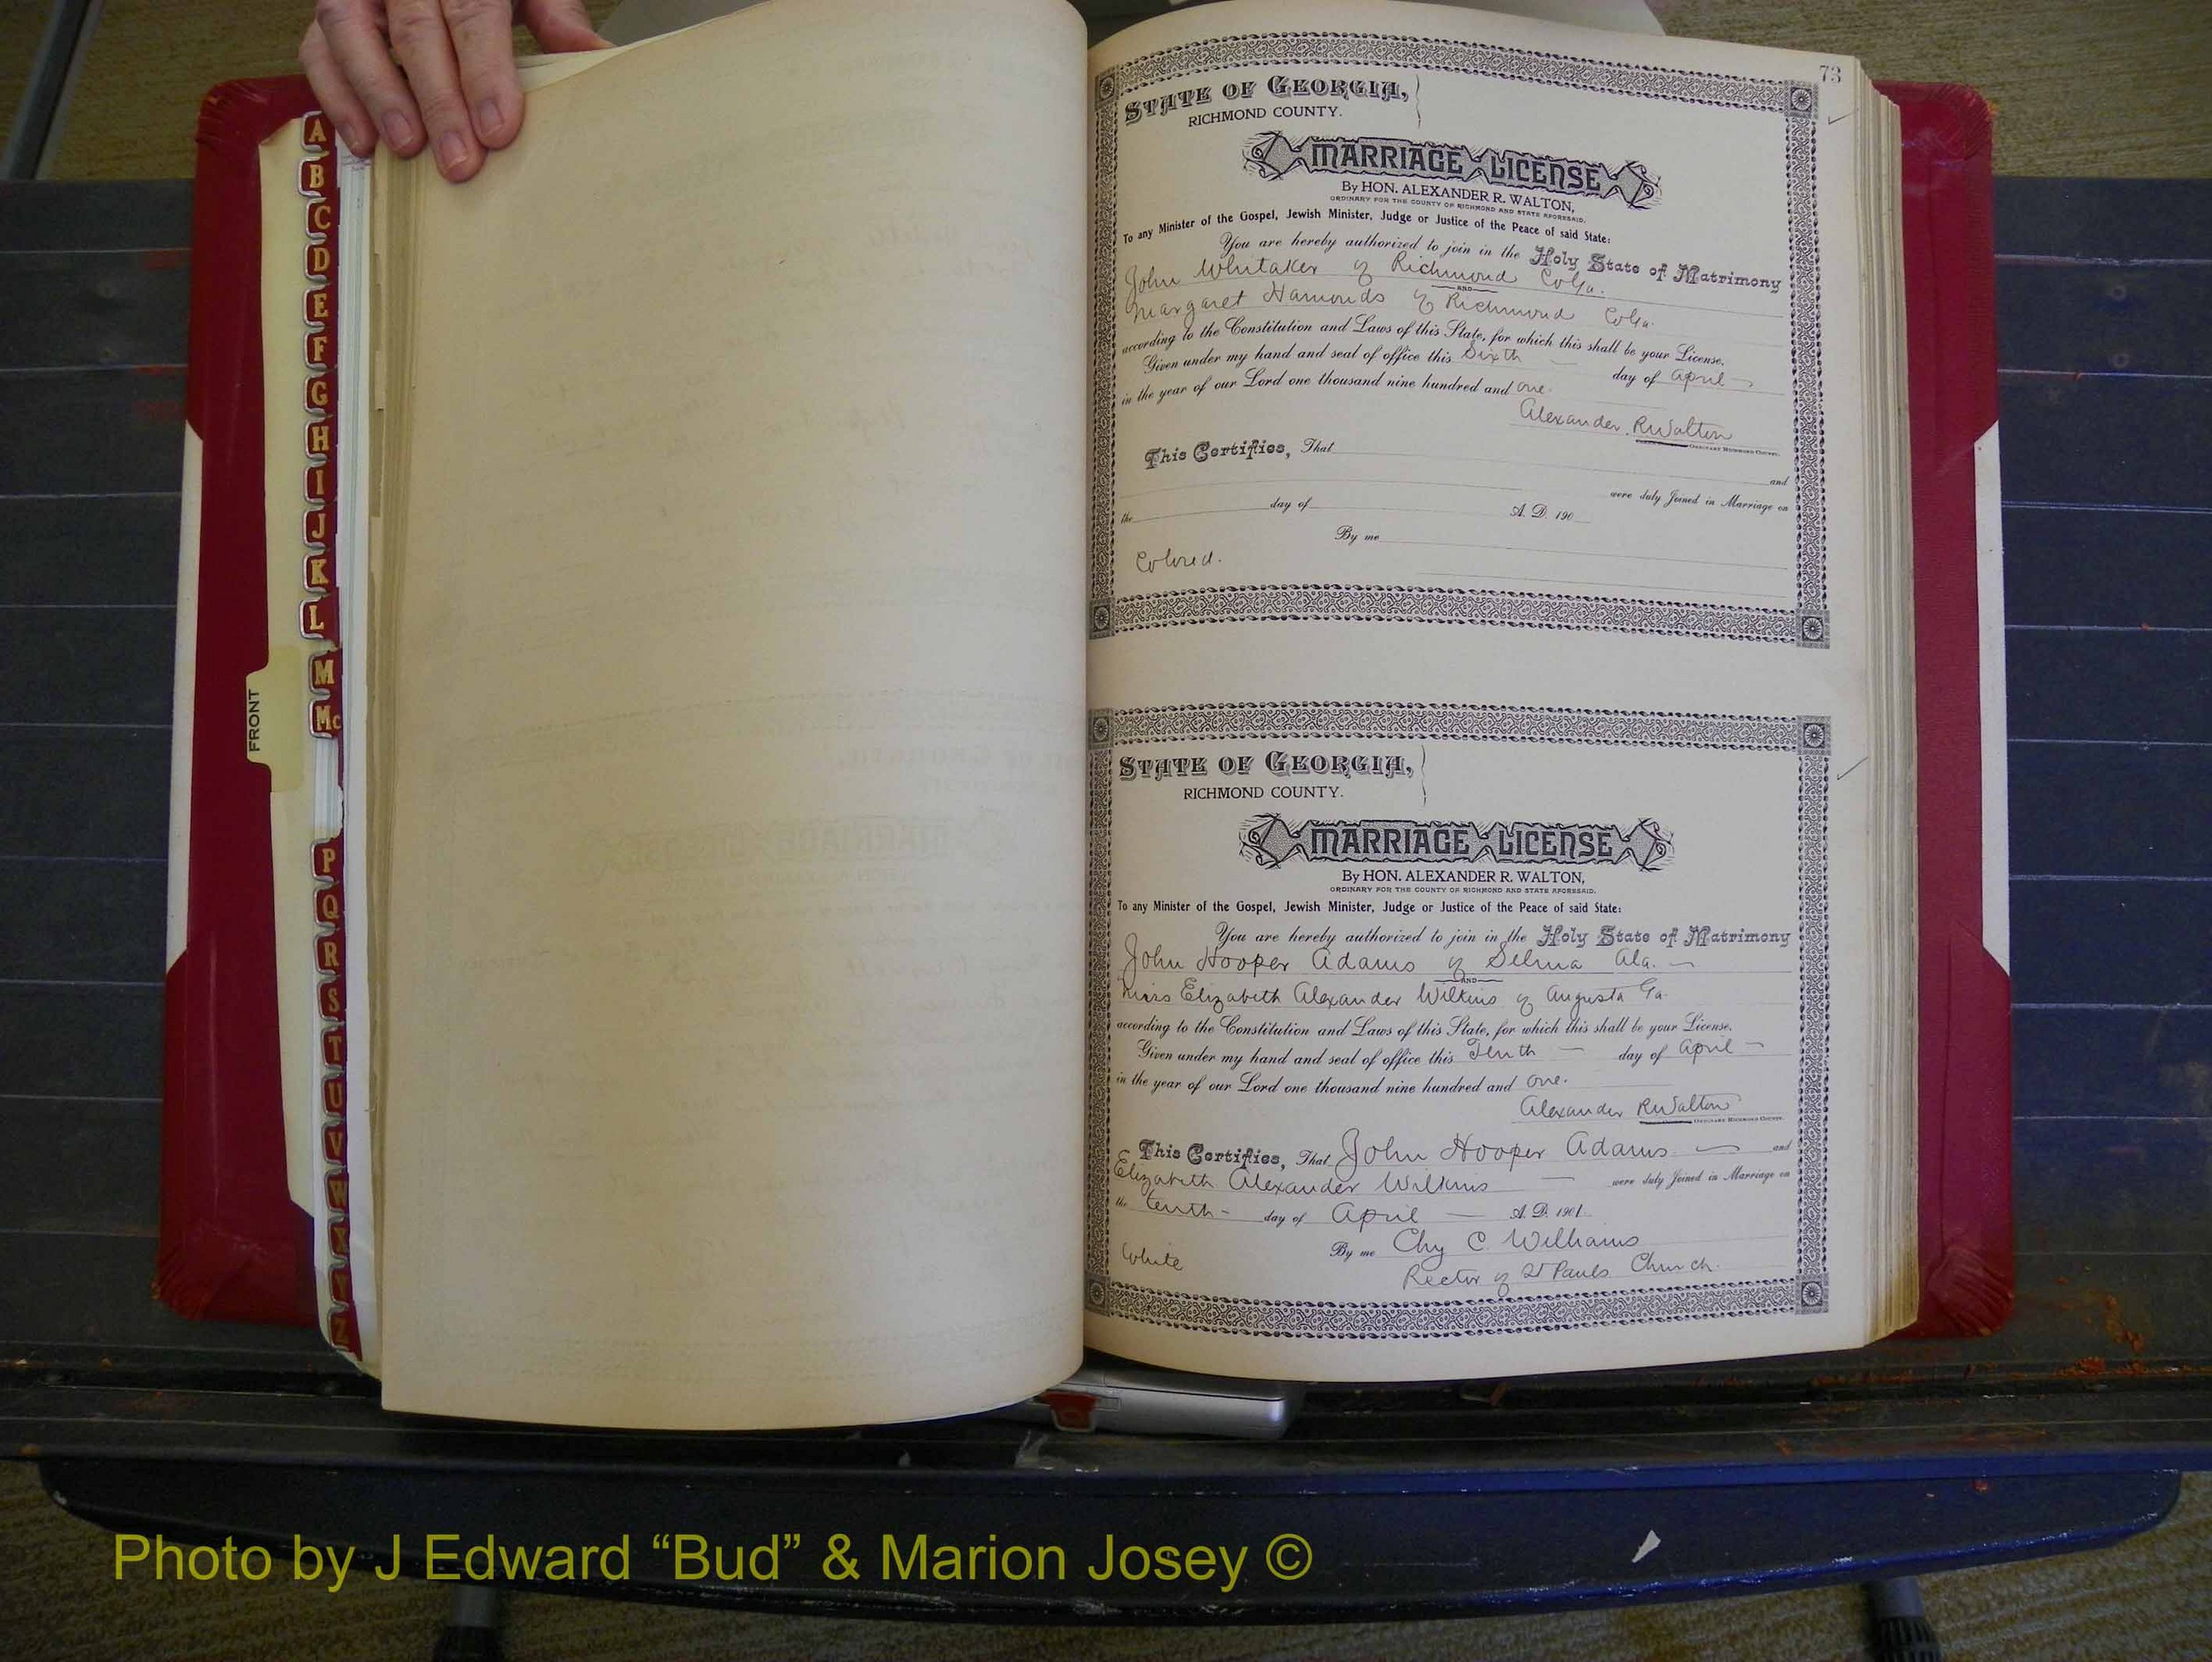 A
B
C
D
E
F
G
H
I
J
K
L
M
Mc
P
Q
R
S
T
U
V
W
X
Y
Z
FRONT
73
STATE OF GEORGIA,
RICHMOND COUNTY.
MARRIAGE LICENSE
By HON. ALEXANDER R. WALTON,
ORDINARY FOR THE COUNTY OF RICHMOND AND STATE AFORESAID.
To any Minister of the Gospel, Jewish Minister, Judge or Justice of the Peace of said State:
You are hereby authorized to join in the Holy State of Matrimony
John Whitaker of Richmond Co Ga.
AND
Margaret Hamonds of Richmond Co Ga.
according to the Constitution and Laws of this State, for which this shall be your License.
Given under my hand and seal of office this Sixth day of April
in the year of our Lord one thousand nine hundred and one.
Alexander R Walton
ORDINARY RICHMOND COUNTY.
This Certifies, That
and
were duly Joined in Marriage on
the day of A. D. 190
By me
Colored.
STATE OF GEORGIA,
RICHMOND COUNTY.
MARRIAGE LICENSE
By HON. ALEXANDER R. WALTON,
ORDINARY FOR THE COUNTY OF RICHMOND AND STATE AFORESAID.
To any Minister of the Gospel, Jewish Minister, Judge or Justice of the Peace of said State:
You are hereby authorized to join in the Holy State of Matrimony
John Hooper Adams of Selma Ala.
AND
Miss Elizabeth Alexander Wilkins of Augusta Ga.
according to the Constitution and Laws of this State, for which this shall be your License.
Given under my hand and seal of office this Tenth day of April
in the year of our Lord one thousand nine hundred and one.
Alexander R Walton
ORDINARY RICHMOND COUNTY.
This Certifies, That John Hooper Adams and
Elizabeth Alexander Wilkins were duly Joined in Marriage on
the tenth day of April A. D. 1901
By me Chy C. Williams
White
Rector of St Pauls Church.
Photo by J Edward “Bud” & Marion Josey ©